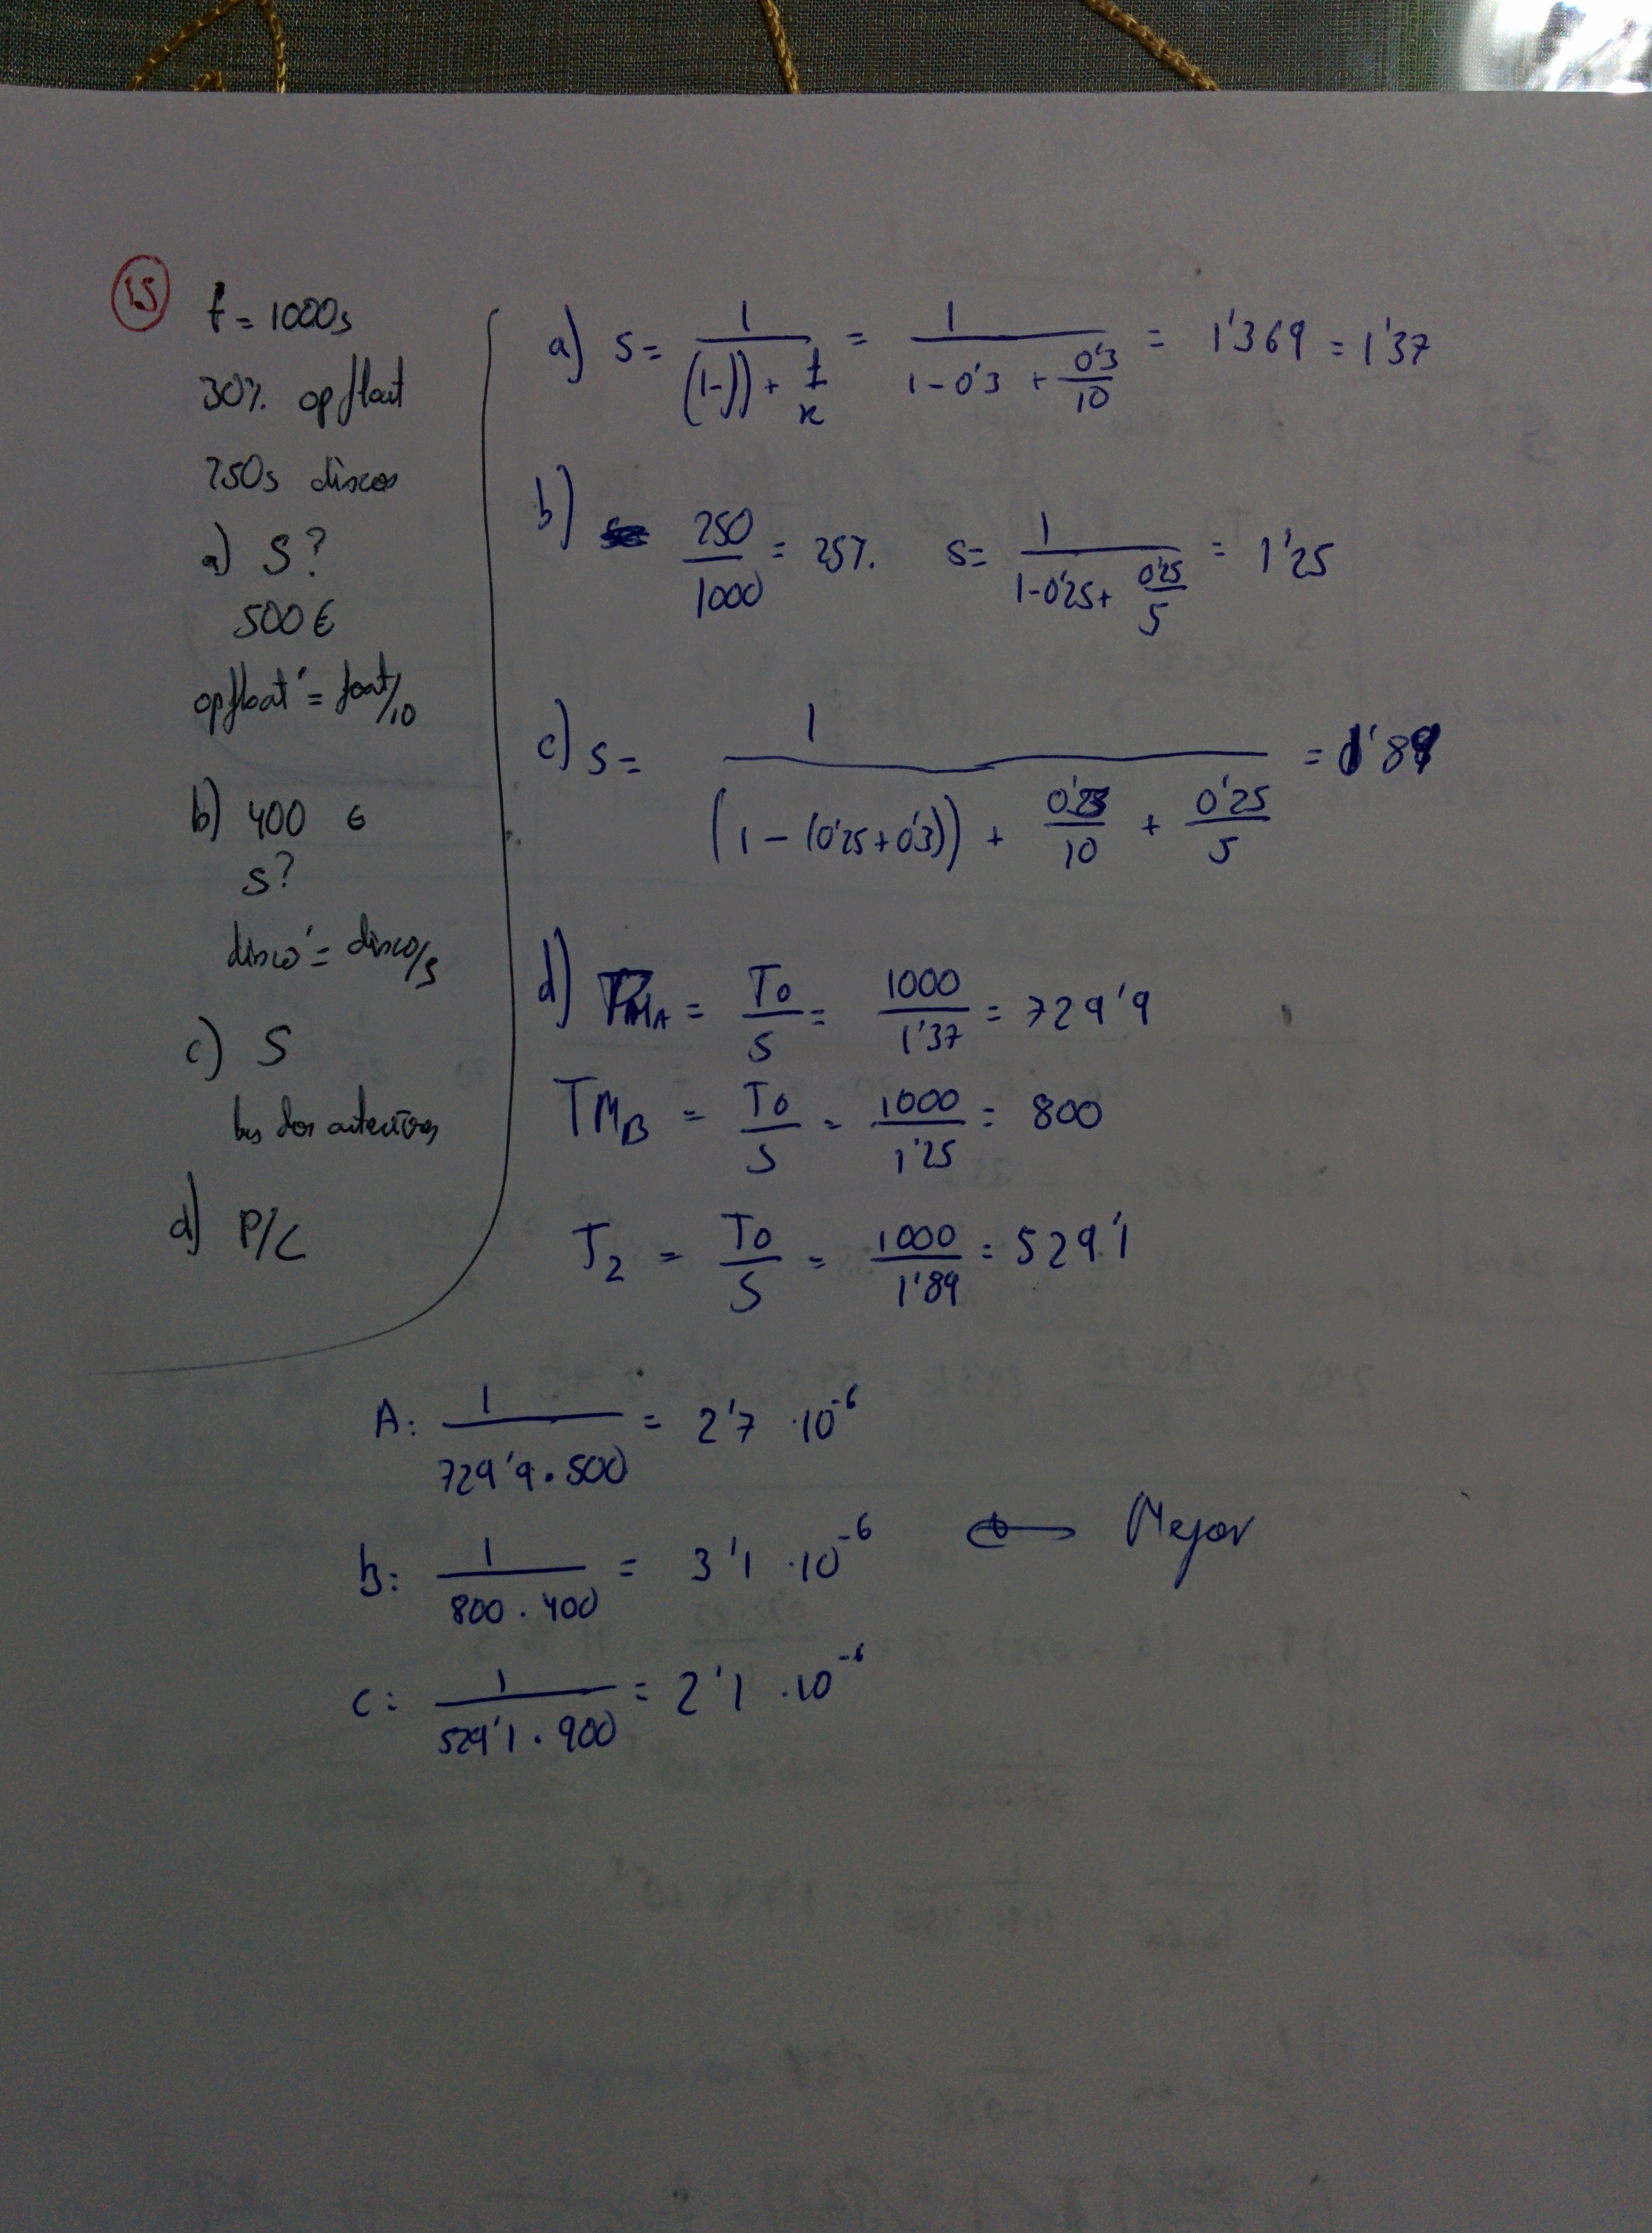 15
t = 1000s
30% opfloat
250s discos
a) S?
500 €
opfloat' = float/10
b) 400 €
S?
disco' = disco/5
c) S
los dos anteriores
d) P/C
a) S = 1 / ((1-f) + f/k) = 1 / (1-0'3 + 0'3/10) = 1'369 = 1'37
b) 250/1000 = 25% S = 1 / (1-0'25 + 0'25/5) = 1'25
c) S = 1 / ((1-(0'25+0'3)) + 0'3/10 + 0'25/5) = 1'89
d) TMA = To/S = 1000/1'37 = 729'9
TMB = To/S = 1000/1'25 = 800
T2 = To/S = 1000/1'89 = 529'1
A: 1 / (729'9 · 500) = 2'7 · 10^-6
B: 1 / (800 · 400) = 3'1 · 10^-6 ← Mejor
C: 1 / (529'1 · 900) = 2'1 · 10^-6